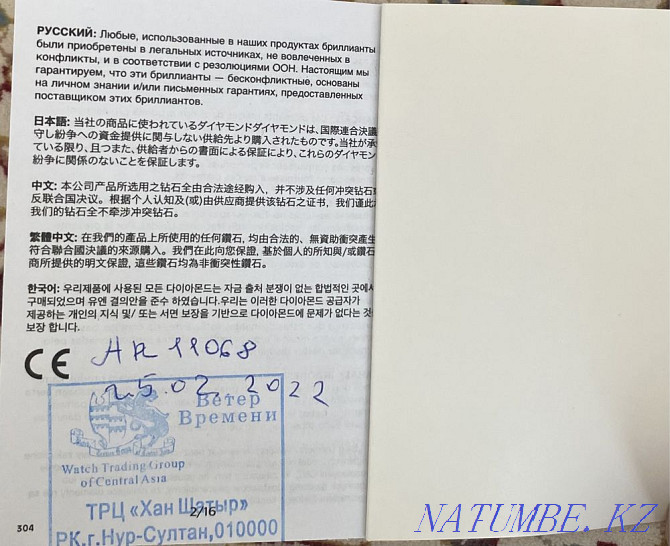 РУССКИЙ: Любые, использованные в наших продуктах бриллианты
были приобретены в легальных источниках, не вовлеченных в
конфликты, и в соответствии с резолюциями ООН. Настоящим мы
гарантируем, что эти бриллианты — бесконфликтные, основаны
на личном знании и/или письменных гарантиях, предоставленных
поставщиком этих бриллиантов.
日本語: 当社の商品に使われているダイヤモンドダイヤモンドは、国際連合決議
守し紛争への資金提供に関与しない供給先より購入されたものです。当社が承
ている限り、且つまた、供給者からの書面による保証により、これらのダイヤモン
紛争に関係のないことを保証します。
中文: 本公司产品所选用之钻石全由合法途经购入，并不涉及任何冲突钻石
反联合国决议。根据个人认知及(或)由供应商提供该钻石之证书，我们谨此
我们的钻石全不牵涉冲突钻石。
繁體中文: 在我們的產品上所使用的任何鑽石，均由合法的、無資助衝突產生
符合聯合國決議的來源購入。我們在此向您保證，基於個人的所知與/或鑽石
商所提供的明文保證，這些鑽石均為非衝突性鑽石。
한국어: 우리제품에 사용된 모든 다이아몬드는 자금 출처 분쟁이 없는 합법적인 곳에서
구매되었으며 유엔 결의안을 준수 하였습니다.우리는 이러한 다이아몬드 공급자가
제공하는 개인의 지식 및/ 또는 서면 보장을 기반으로 다이아몬드에 문제가 없다는 것
보장 합니다.
CE
AR 11068
25.02.2022
Ветер
Времени
Watch Trading Group
of Central Asia
ТРЦ «Хан Шатыр»
2/16
РК.г.Нур-Султан,010000
304
NATUMBE.KZ